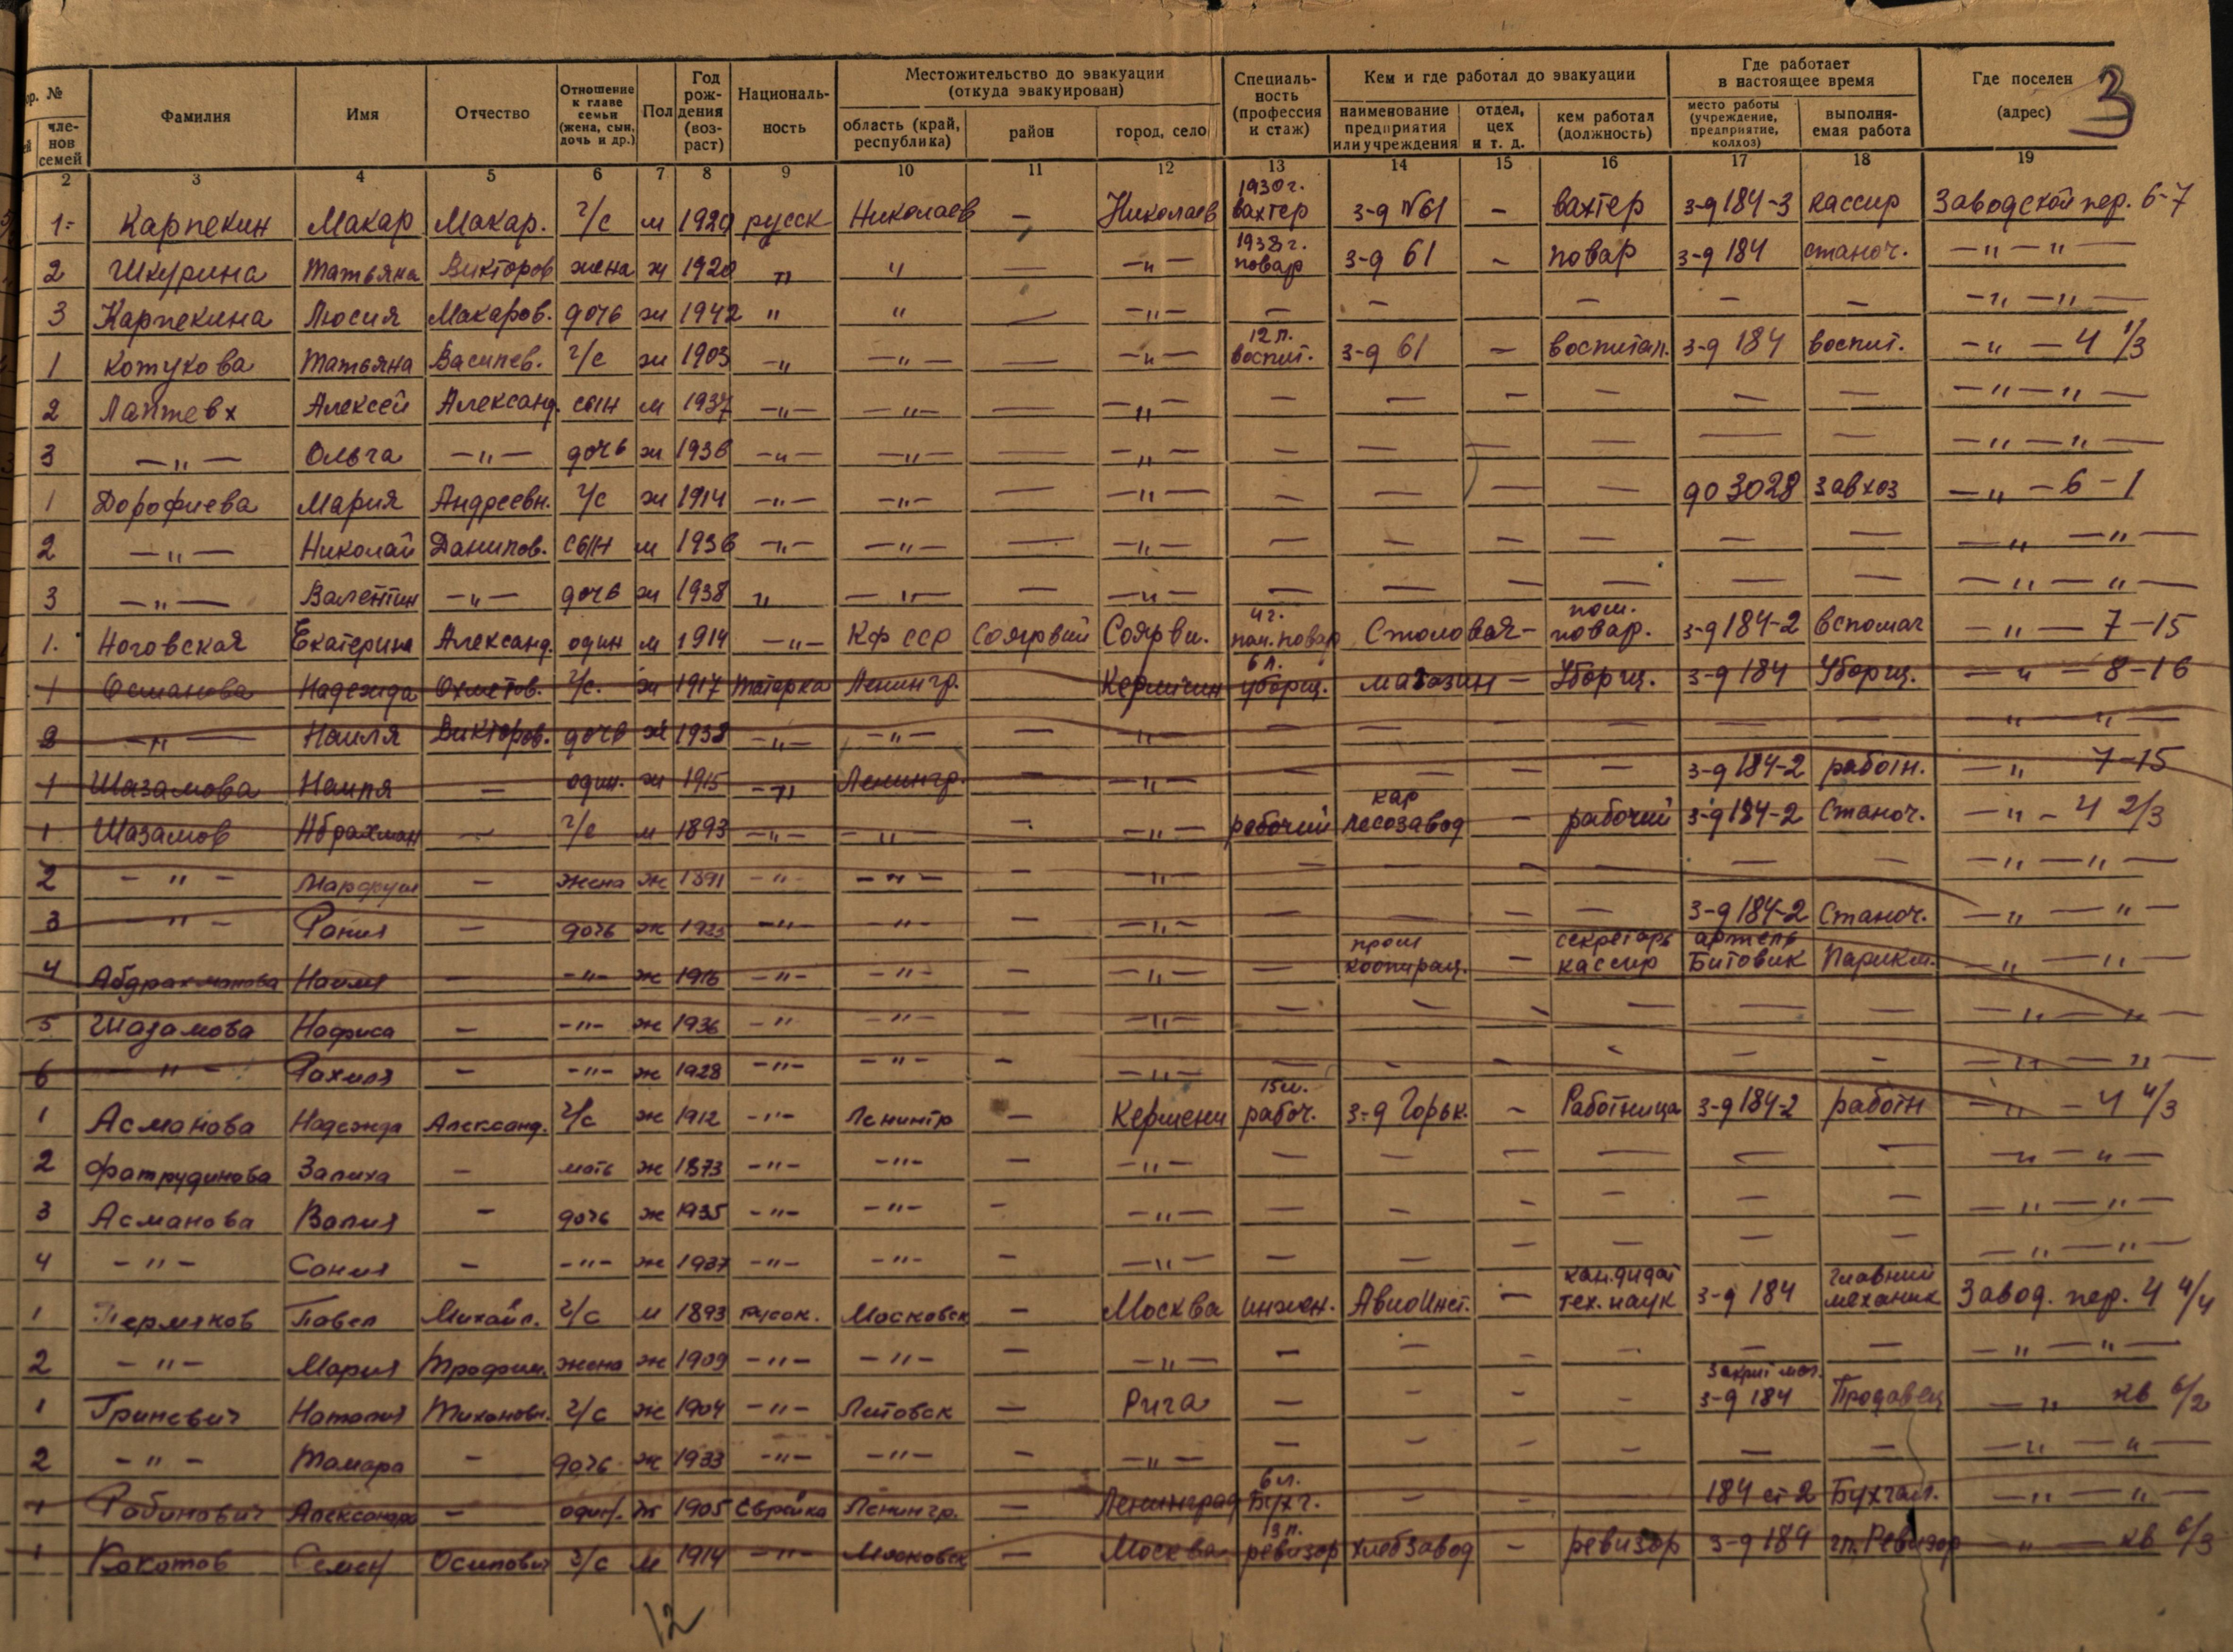 3
Местожительство до эвакуации (откуда эвакуирован)
Кем и где работал до эвакуации
Где работает в настоящее время
№ членов семей | Фамилия | Имя | Отчество | Отношение к главе семьи (жена, сын, дочь и др.) | Пол | Год рождения (возраст) | Национальность | область (край, республика) | район | город, село | Специальность (профессия и стаж) | наименование предприятия или учреждения | отдел, цех и т. д. | кем работал (должность) | место работы (учреждение, предприятие, колхоз) | выполняемая работа | Где поселен (адрес)
2 3 4 5 6 7 8 9 10 11 12 13 14 15 16 17 18 19
1 Карпекин Макар Макар. г/с м 1920 русск Николаев — Николаев 1930 г. вахтер з-д №61 - вахтер з-д 184-3 кассир Заводской пер. 6-7
2 Шкурина Татьяна Викторов жена ж 1920 " " — -"- 1938 г. повар з-д 61 - повар з-д 184 станоч. -"-"-
3 Карпекина Люсия Макаров. дочь ж 1942 " " — -"- — — — — — -"-"-
1 Котукова Татьяна Василев. г/с ж 1903 -" -"- — -"- 12 л. воспит. з-д 61 - воспитат. з-д 184 воспит. -"- 4 1/3
2 Лаптевх Алексей Александ. сын м 1937 -"- -"- — -"- — — — — — — -"-"-
3 -"- Ольга -"- дочь ж 1936 -"- -"- — -"- — — — — — — -"-"-
1 Дорофиева Мария Андреевн. г/с ж 1914 -"- -"- — -"- — — — — до 3028 завхоз -"- 6-1
2 -"- Николай Данилов. сын м 1936 -"- -"- — -"- — — — — — — -"-"-
3 -"- Валентин -"- дочь ж 1938 " -"- — -"- — — — — — — -"-"-
1. Ноговская Екатерина Александ. один м 1914 -"- Кф сср Соярвий Соярви. 4 г. пом. повар Столовая - пом. повар. з-д 184-2 вспомаг -"- 7-15
1 Османова Надежда Охметов. г/с. ж 1917 татарка Ленингр. Кермичин 6 л. уборщ. магазин - Уборщ. з-д 184 Уборщ. -"- 8-16
2 -"- Наиля Викторов. дочь ж 1938 -"- -"- — -"- — — — — — — -"-"-
1 Шазамова Наиля — один. ж 1915 -"- Ленингр. — -"- — — — — з-д 184-2 работн. -" 7-15
1 Шазамов Абрахман — г/с м 1893 -"- -"- — -"- рабочий кар лесозавод - рабочий з-д 184-2 Станоч. -"- 4 2/3
2 -"- Марфуш — жена ж 1891 -"- -"- — -"- — — — — — — -"-"-
3 -"- Рания — дочь ж 1923 -"- -"- — -"- — — — — з-д 184-2 Станоч. -"-"-
4 Абдрахманова Наиля — -"- ж 1916 -"- -"- — -"- — пром кооперац. - секретарь кассир артель Битовик Парикм. -"-"-
5 Шазамова Нафиса — -"- ж 1936 -"- -"- -"- — — — — — — -"-"-
6 -"- Рахиля — -"- ж 1928 -"- -"- — -"- — — — — — — -"-"-
1 Асманова Надежда Александ. г/с ж 1912 -"- Ленингр — Кермени 15 л. рабоч. з-д Горьк. - Работница з-д 184-2 работн -"- 4 4/3
2 Фатрудинова Залиха — мать ж 1873 -"- -"- — -"- — — — — — — -"-"-
3 Асманова Валия — дочь ж 1935 -"- -"- — -"- — — — — — — -"-"-
4 -"- Сания — -"- ж 1937 -"- -"- — -"- — — — — — — -"-"-
1 Пермяков Павел Михайл. г/с м 1893 русск. Московск — Москва инжен. АвиоИнст. - кандидат тех. наук з-д 184 главний механик Завод. пер. 4 4/4
2 -"- Мария Трофим. жена ж 1909 -"- -"- — -"- — — — — — -"-"-
1 Гриневич Наталия Тихоновн. г/с ж 1904 -"- Литовск — Рига — — — — Закрыт маг. з-д 184 Продавец -" кв 6/2
2 -"- Тамара — дочь ж 1933 -"- -"- — -"- — — — — — — -"-"-
1 Рабинович Александра — один. ж 1905 Еврейка Ленингр. — Ленинград 6 л. Бухг. — — 184 ст 2 Бухгал. -"-"-
1 Кокотов Семен Осипович г/с м 1914 -"- Московск — Москва 13 л. ревизор хлебзавод - ревизор з-д 184 гл. Ревизор -"- кв 6/3
12